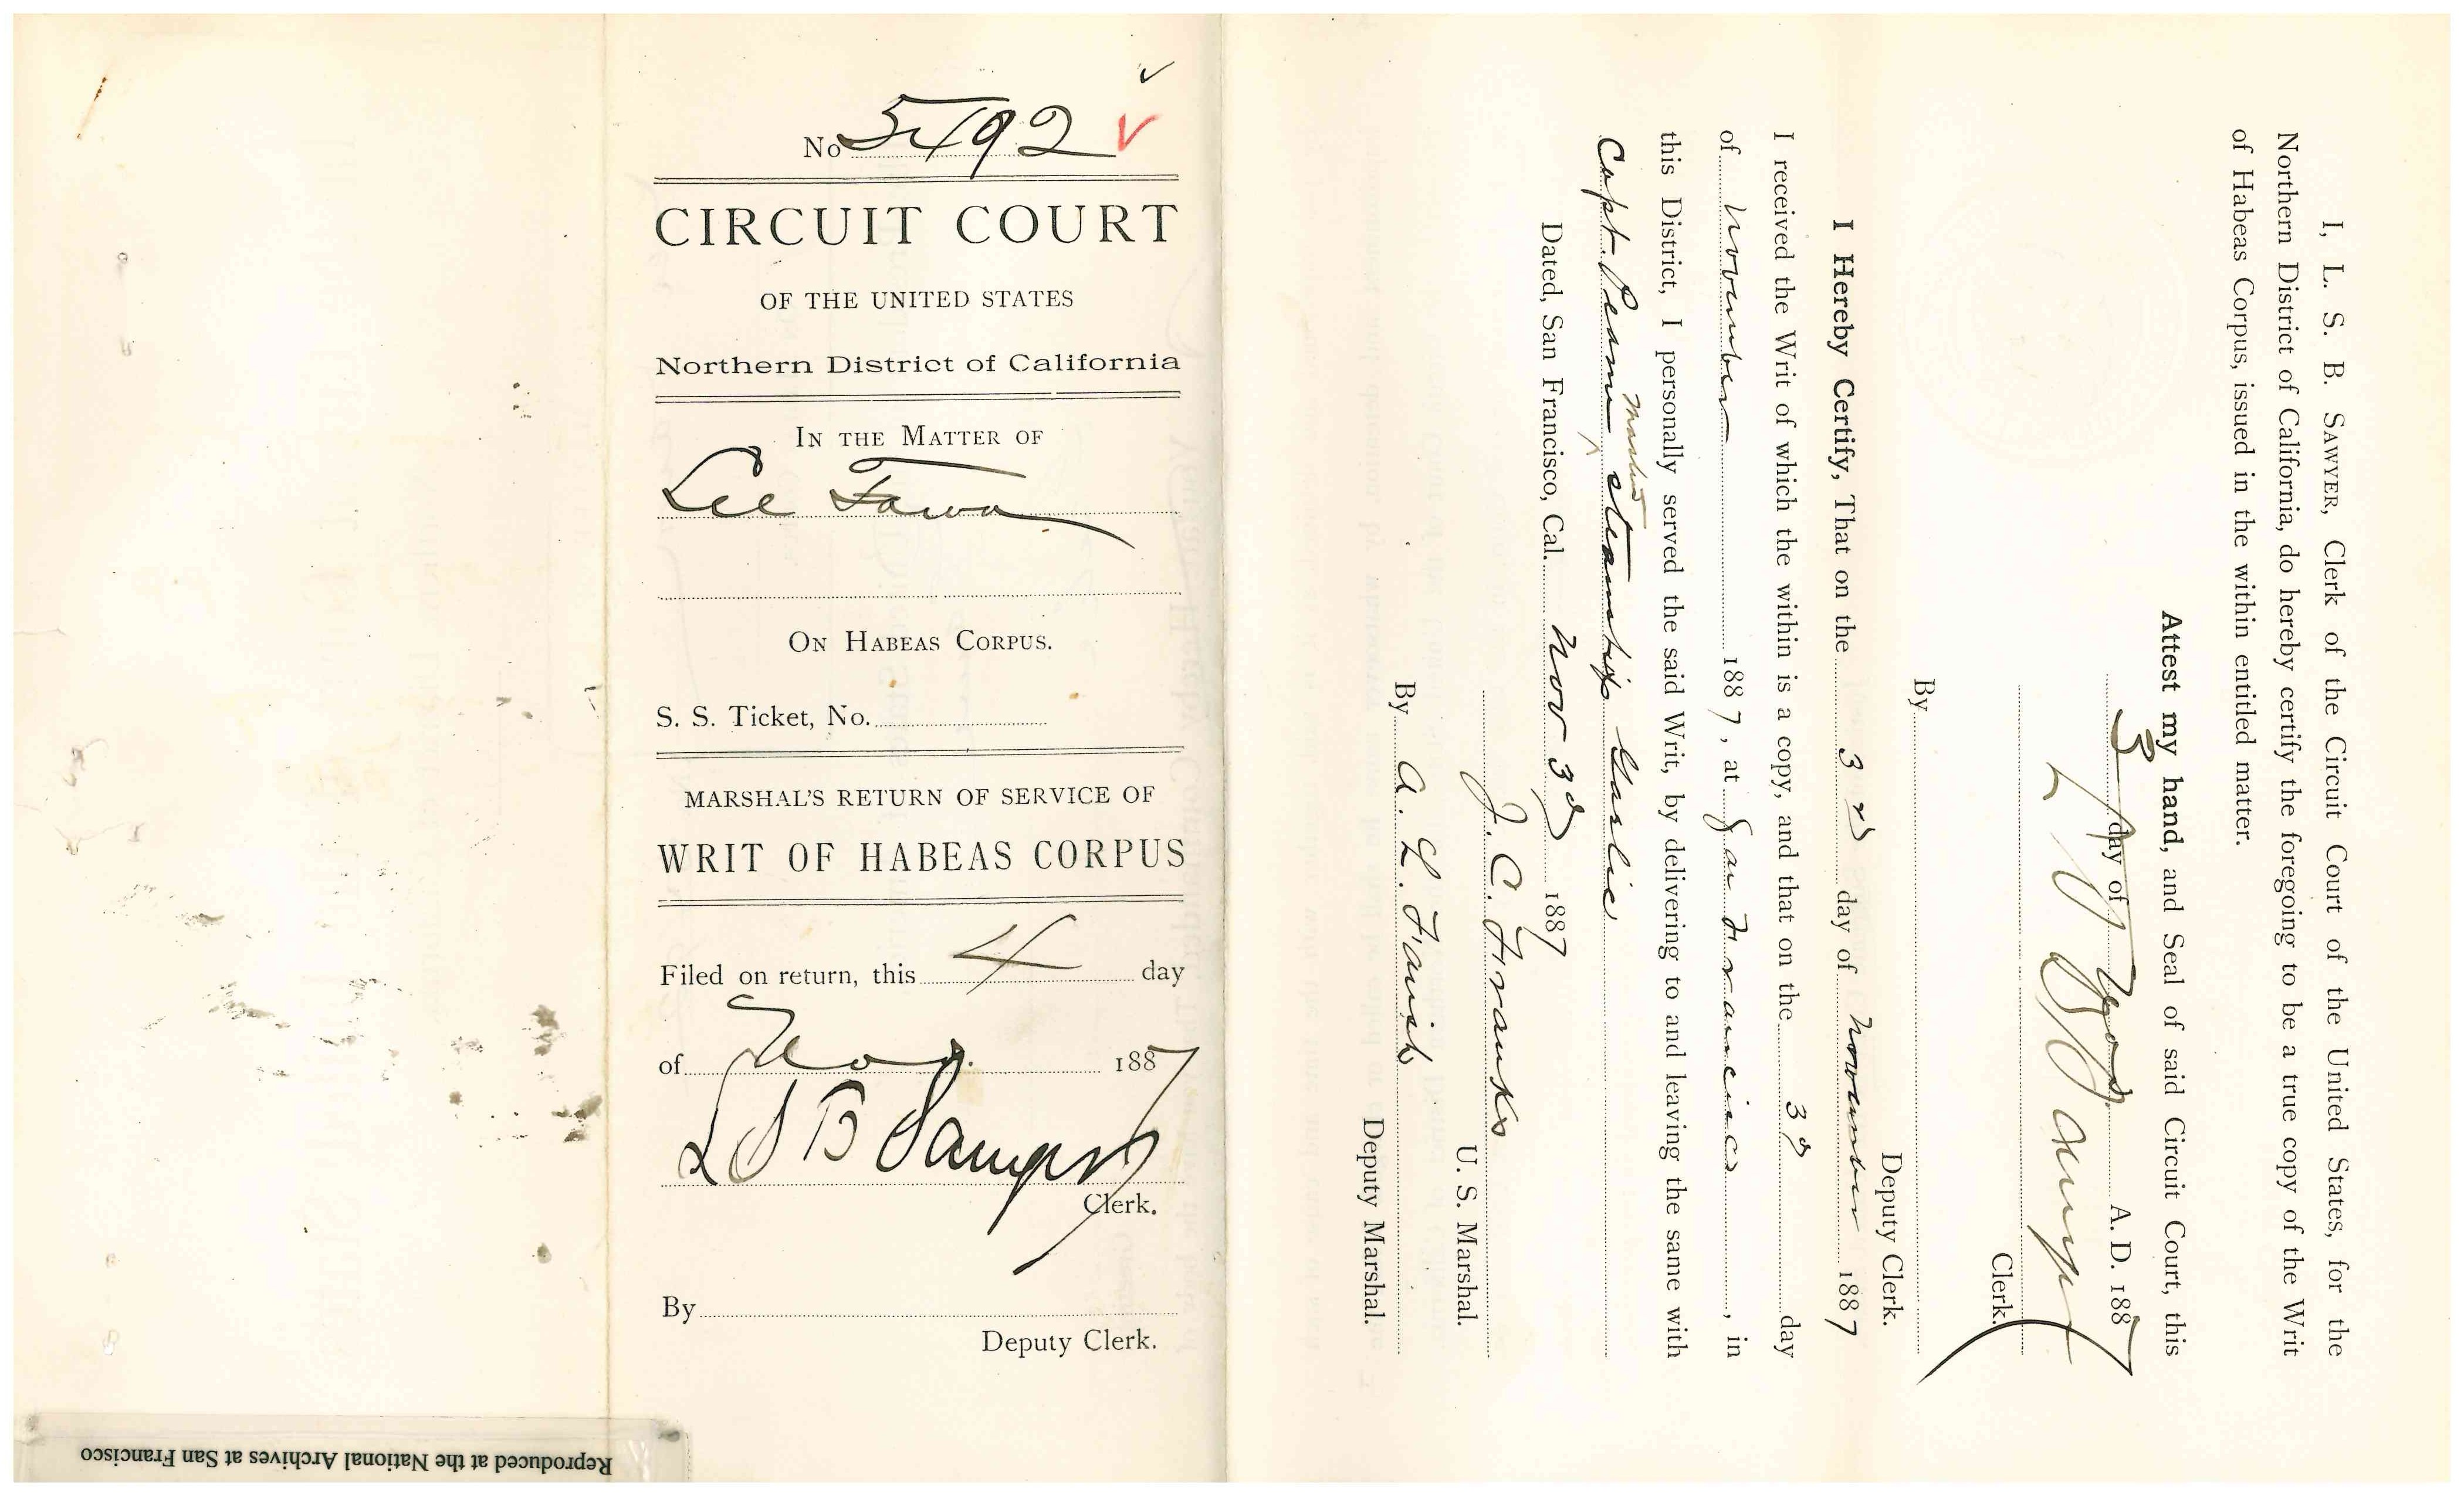 No 5492
CIRCUIT COURT
OF THE UNITED STATES
Northern District of California
IN THE MATTER OF
Lee Fawn
ON HABEAS CORPUS.
S. S. Ticket, No.
MARSHAL'S RETURN OF SERVICE OF
WRIT OF HABEAS CORPUS
Filed on return, this 4 day
of Nov. 1887
L S B Sawyer
Clerk.
By
Deputy Clerk.
Reproduced at the National Archives at San Francisco
I, L. S. B. SAWYER, Clerk of the Circuit Court of the United States, for the
Northern District of California, do hereby certify the foregoing to be a true copy of the Writ
of Habeas Corpus, issued in the within entitled matter.
Attest my hand, and Seal of said Circuit Court, this
3 day of Nov. A. D. 1887
L S B Sawyer
Clerk.
By
Deputy Clerk.
I Hereby Certify, That on the 3rd day of November 1887
I received the Writ of which the within is a copy, and that on the 3d day
of November 1887, at San Francisco, in
this District, I personally served the said Writ, by delivering to and leaving the same with
Capt. steamship Gaelic
Dated, San Francisco, Cal. Nov 3d 1887
J. C. Franks
U. S. Marshal.
By A. L. Farish
Deputy Marshal.